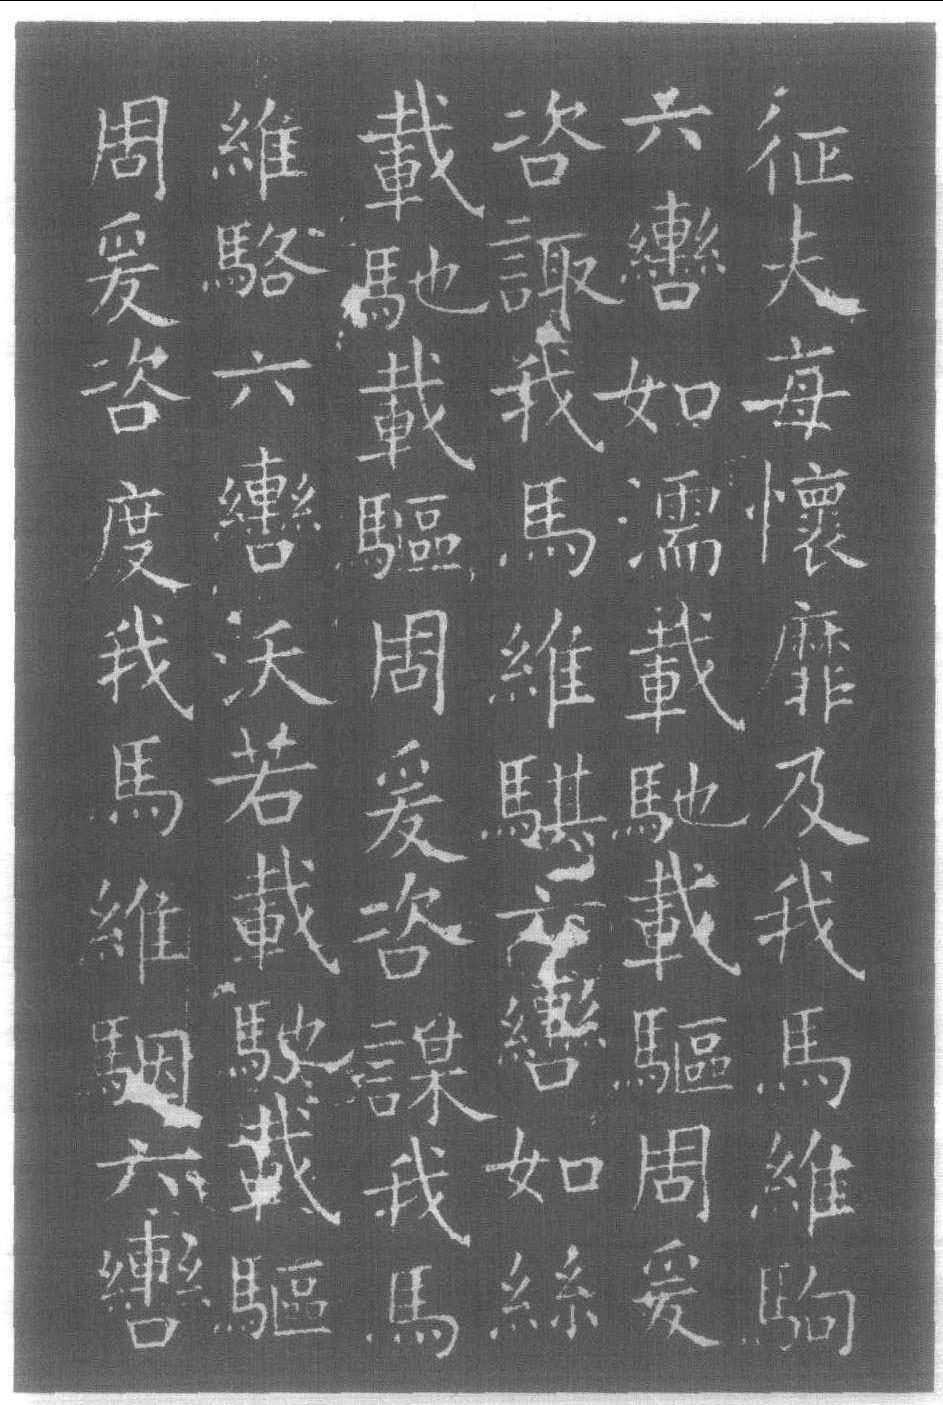 征夫每懷靡及我馬維駒
六轡如濡載馳載驅周爰
咨諏我馬維騏六轡如絲
載馳載驅周爰咨謀我馬
維駱六轡沃若載馳載驅
周爰咨度我馬維駰六轡